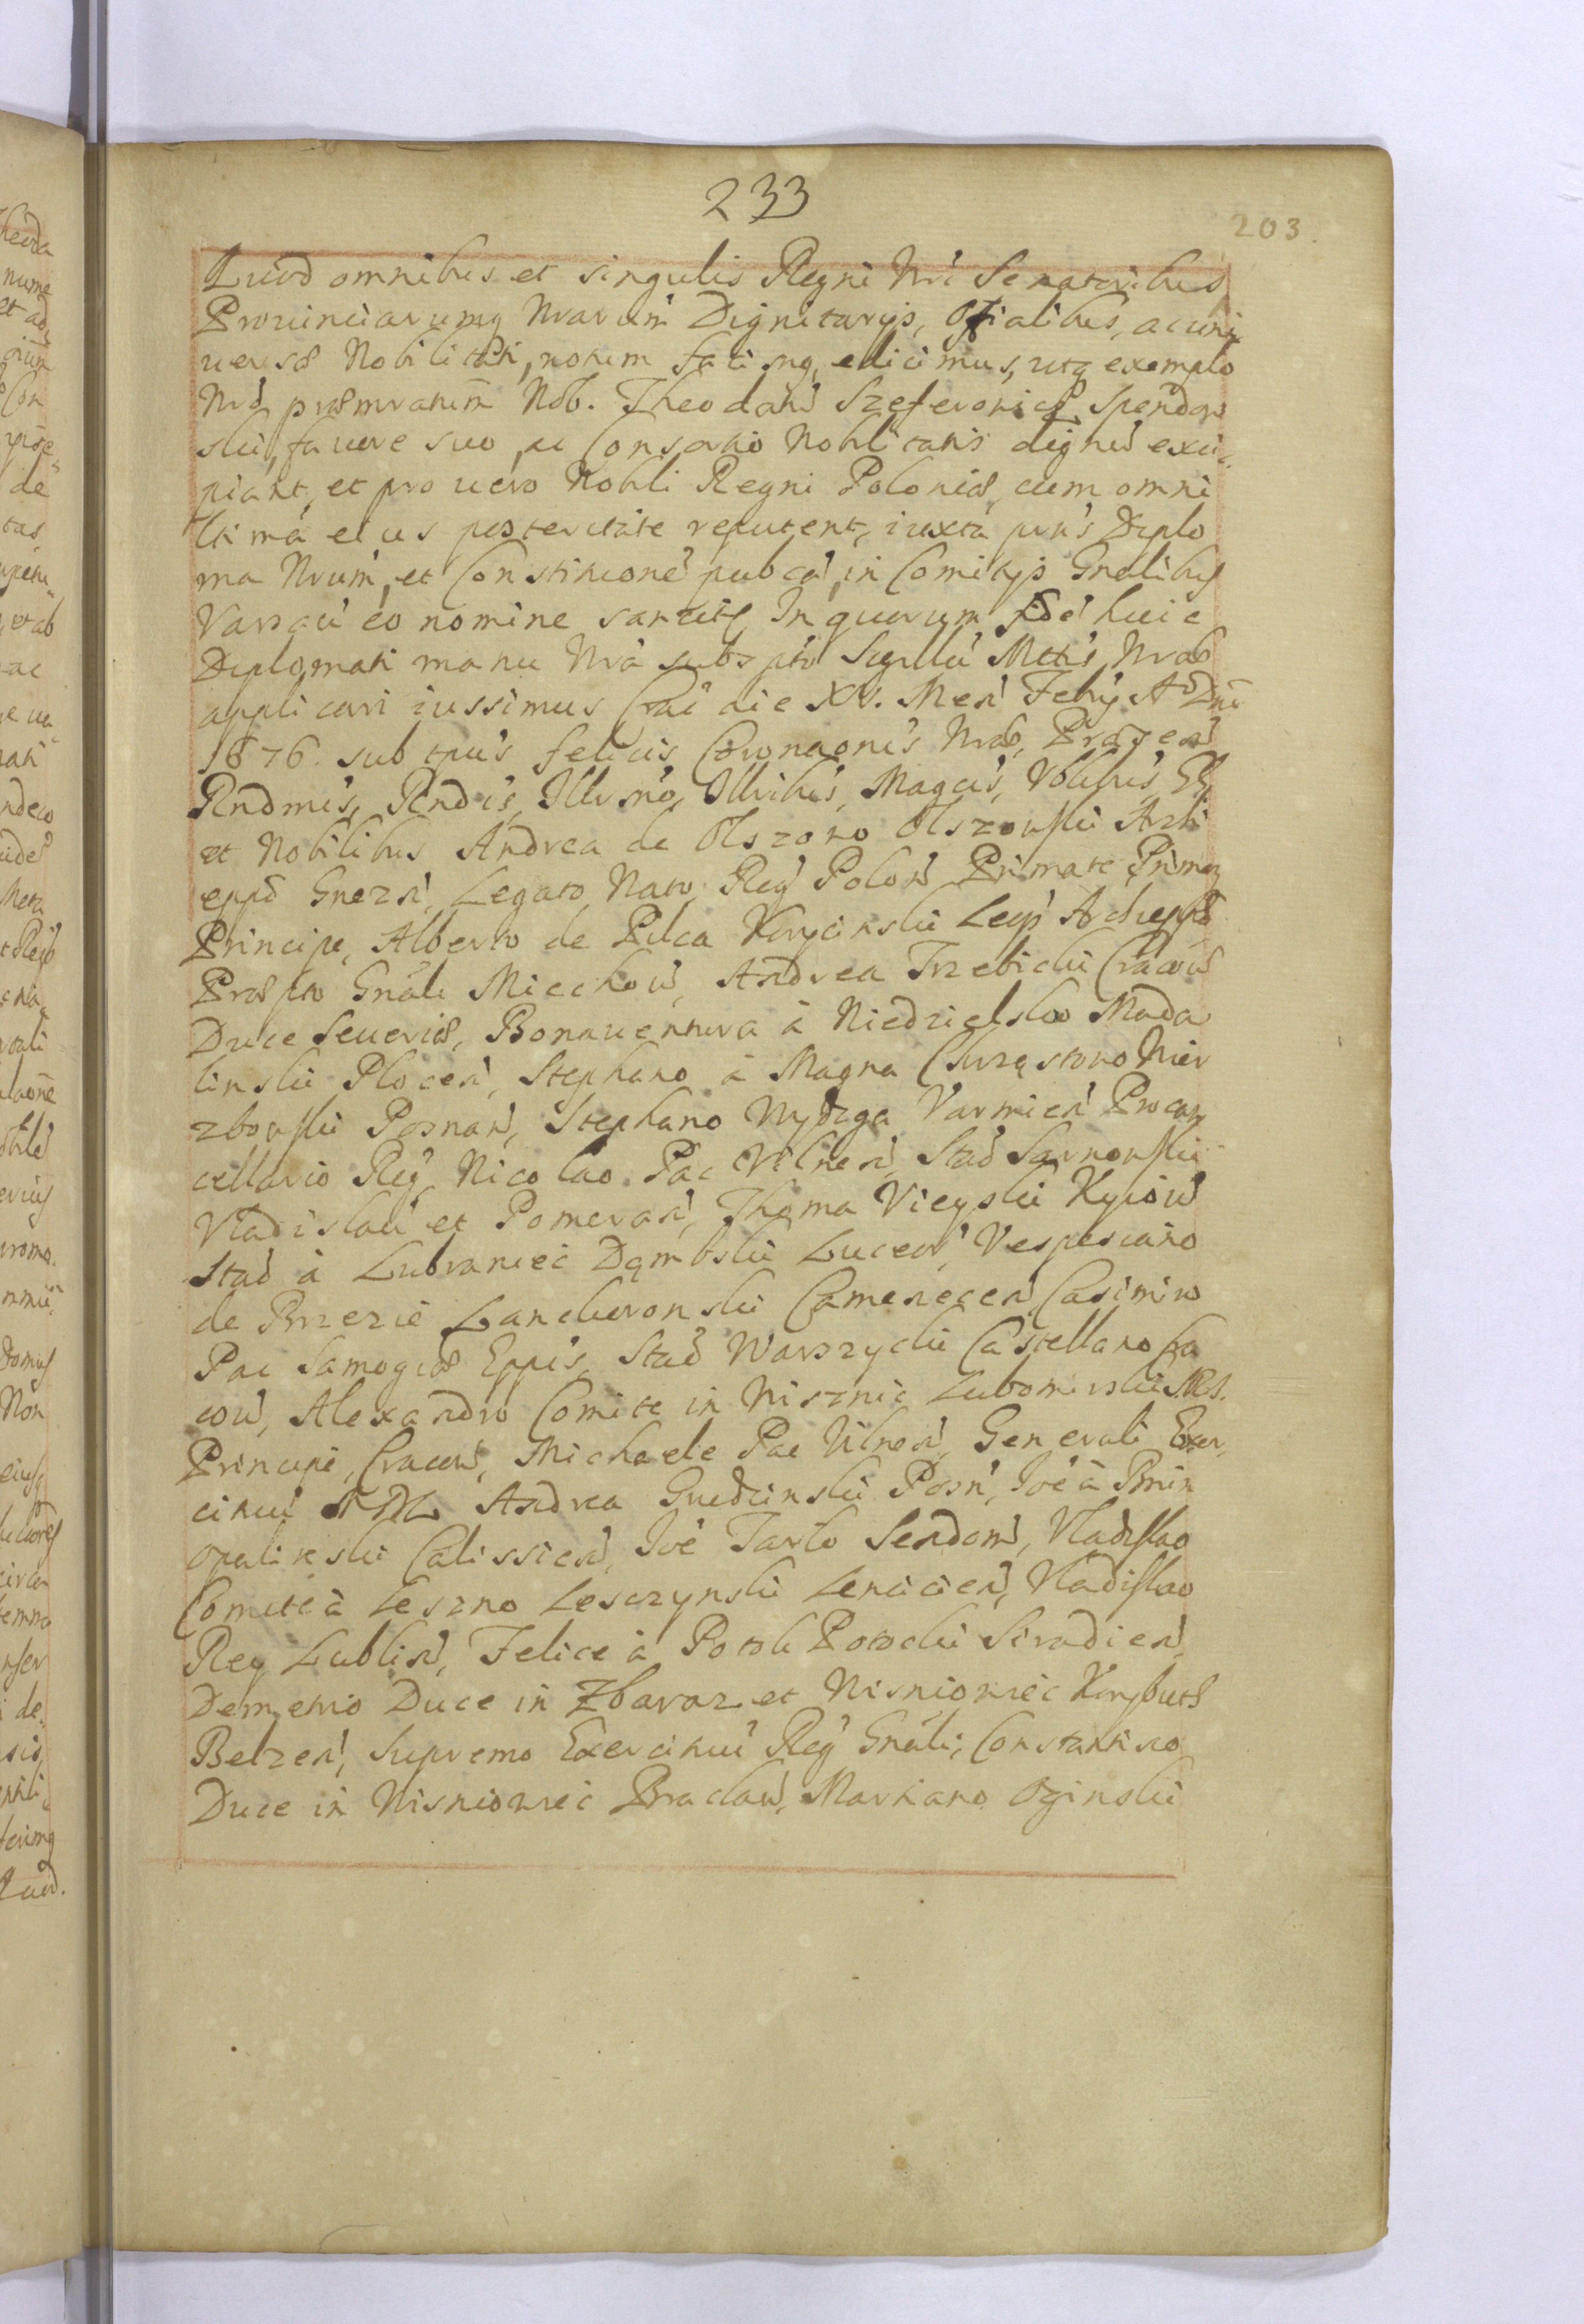 233
203.
Quod omnibus et singulis Regni Nri Senatoribus
Prouinciarumq Nrarum Dignitarijs, Offialibus, ac uni
uersæ Nobilitati, notum facimq, edicimus, utq exemplo
Nro præmratum Nob. Theodatu Szeferonicz Spendow
ski, fauore suo, ac Consortio Noblitatis dignu exci
piant, et pro uero Nobli Regni Poloniæ, cum omni
ltima eius posteritate reputent, iuxta prns Diplo
ma Nrum, et Constitucione pubca, in Comitijs Gnalibus
Varsau eo nomine sancita In quorum fide huic
Diplomati manu Nra subspto Sigillu Mttis Nræ
applicari iussimus Crac die XV. Men Febrij Ao Dni
1676. sub tpus felicis Coronaonis Nræ, Præsen
Rndmis, Rndis, Illrsmo, Illribus, Magcis, Vblibus, G
et Nobilibus Andrea de Olszowo Olszowski Archi
eppo Gnezn, Legato Nato, Reg Polon Primate Primoq
Principe, Alberto de Pilca Korycinski Leop Archieppo
Præpto Gnali Miechow, Andrea Trzebicki Cracou
Duce Seueriæ, Bonauentura à Niedzielsko Mada
linski Plocen, Stephano à Magna Chrząstowo Wier
zbowski Posnan, Stephano Wydzga Varmien Procan
cellario Reg Nicolao Pac Vilnen, Stao Sarnowski
Vladislau et Pomeran, Thoma Vieyski Kyiow
Stao à Lubraniec Dąmbski Luceor, Vespesiano
de Brzezie Lanckoronski Camenecen Casimiro
Pac Samogiæ Eppis, Stao Warszycki Castellano Cra
cou, Alexandro Comite in Wisznic Lubomirski SRI.
Principe, Cracou, Michaele Pac Vilnen, Generali Exer
cituu MDL Andrea Grudzinski Posn, Joe à Bnin
Opalinski Calissien, Joe Tarlo Sendom, Vladislao
Comite à Leszno Lesczynski Lencicien, Vladislao
Rey Lublin, Felice à Potok Potocki Siradien,
Demetrio Duce in Zbaraz et Wisniowiec Korybuth
Belzen, Supremo Exercituu Reg Gnali, Constantino
Duce in Wisniowiec Braclau, Martiano Oginski